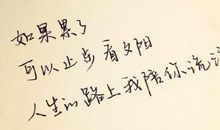 如果累了
可以止步看夕阳
人生的路上我陪你流